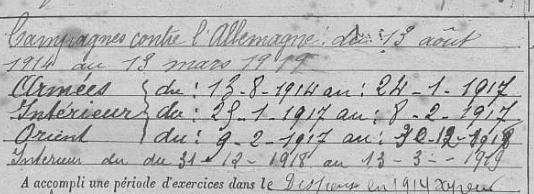 Campagnes contre l'Allemagne: du 13 août
1914 au 13 mars 1919
Armées { du: 13-8-1914 au: 24-1-1917
Intérieur { du: 25-1-1917 au: 8-2-1917
Orient { du: 9-2-1917 au: 30-12-1918
Interieur du du 31-12-1918 au 13-3-1919
A accompli une période d'exercices dans le en 1914